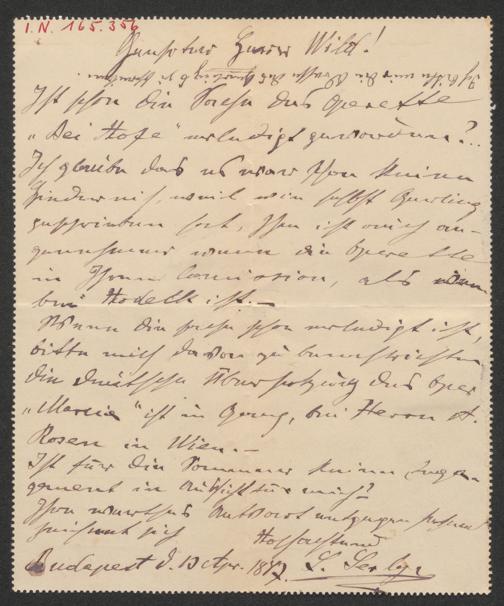 I.N. 165.356
Geehrter Herr Wild!
Ich bitte mir die Adresse des Gerling zu
Ist schon die Sache der Operette
„Bei Hofe“ erledigt geworden?..
Ich glaube das es war schon keine
Hindernis, weil wie selbst Gerling
geschrieben hat, ihm ist auch an-
genehmer wenn die Operette
in Ihrem Comission, als
bei ist.—
Wenn die sache schon erledigt ist,
bitte mich davon zu benachrichten
die deutsche Übersetzung der Oper
„ “ ist in Gang, bei Herrn A.
Rosen in Wien.—
Ist für die Sommer keine Enga-
gement in Aussicht für mich?
Ihre werthe Antwort entgegen sehend
zeichnet sich Hochachtend
Budapest d. 13 Apr. 18